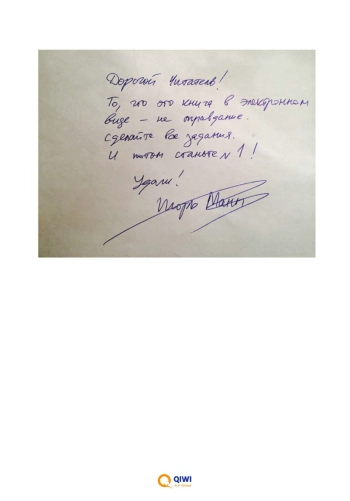 Дорогой Читатель!
То, что это книга в электронном
виде – не оправдание.
Сделайте все задания.
И потом станьте №1!
Удачи!
Игорь Манн
QIWI